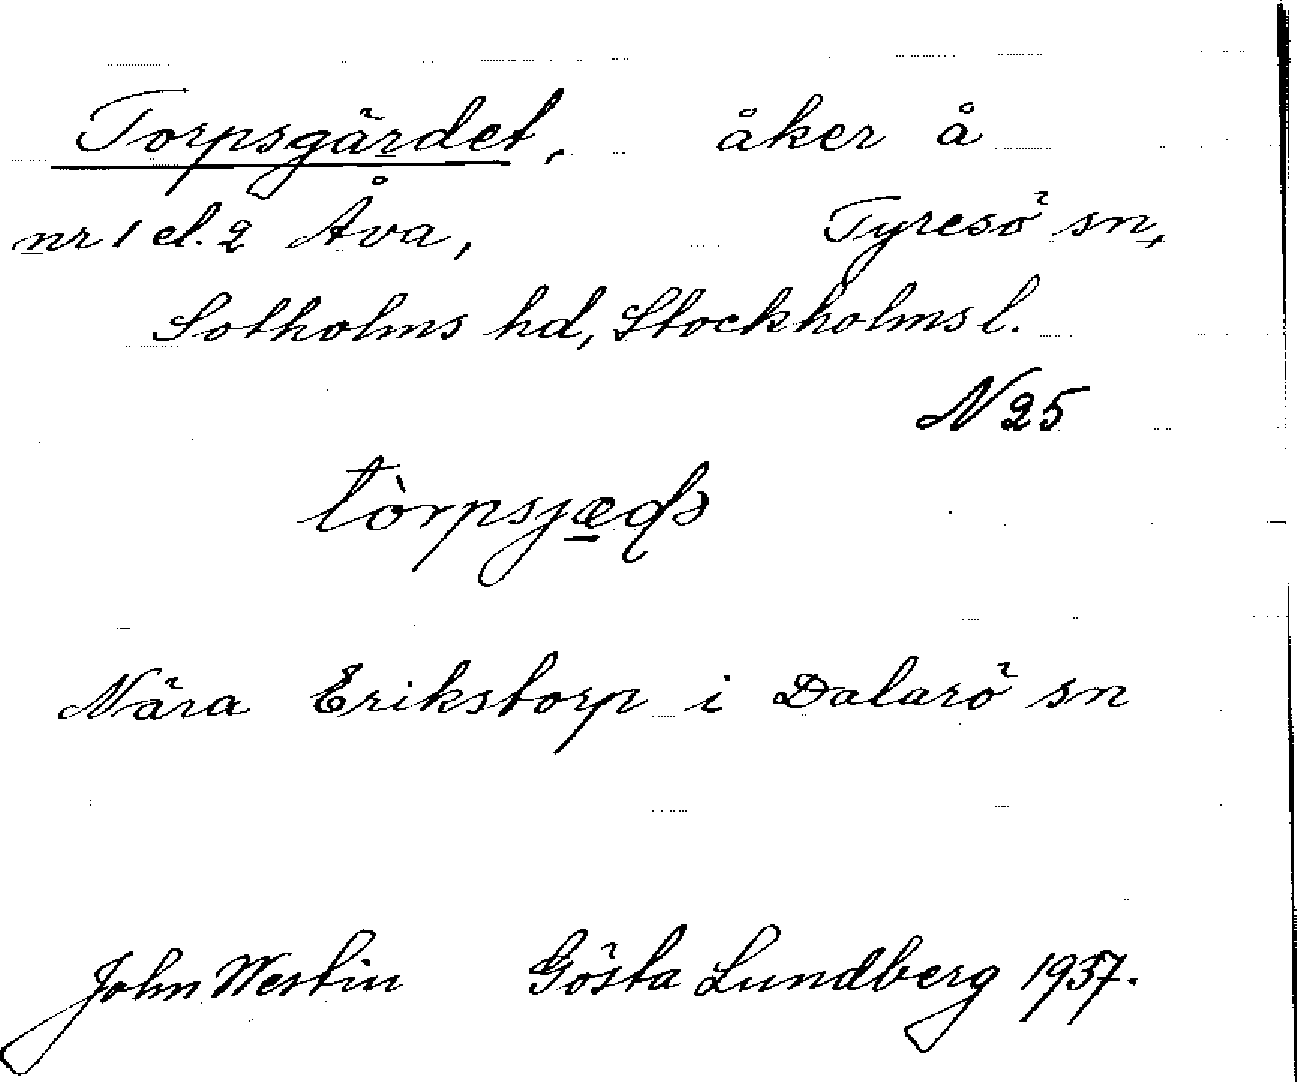 Torpsgärdet, åker å
nr 1 el. 2 Åva, Tyresö sn,
Sotholms hd, Stockholms l.
N 25
Nära Erikstorp i Dalarö sn
John Westin Gösta Lundberg 1937.